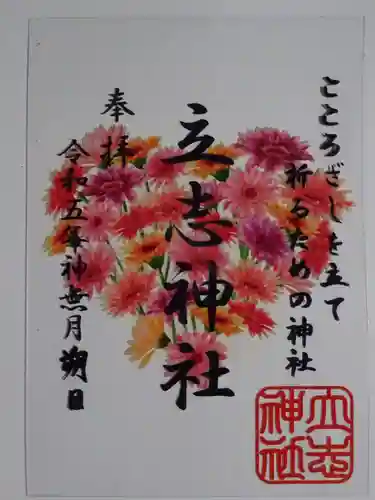 こころざしを立て
祈るための神社
立志神社
奉拝
令和五年神無月朔日
立志
神社